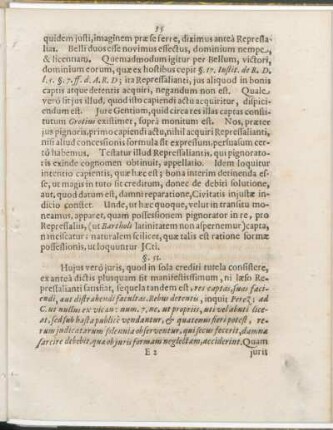 35
quidem justi, imaginem præ se ferre, diximus antea Repressa-
lia. Belli duos esse novimus effectus, dominium nempe,
& licentiam. Quemadmodum igitur per Bellum, victori,
dominium eorum, quæ ex hostibus cepit §. 17. Instit. de R. D.
l. 5. §. 7. ff. d. A. R. D; ita Repressalianti, jus aliquod in bonis
captis atque detentis acquiri, negandum non est. Quale
verò sit jus illud, quod isto capiendi actu acquiritur, dispici-
endum est. Jure Gentium, quid circa res illas captas consti-
tutum Grotius existimet, suprà monitum est. Nos, præter
jus pignoris, primo capiendi actu, nihil acquiri Repressalianti,
nisi aliud concessionis formula sit expressum, persuasum cer-
tò habemus. Testatur illud Repressaliantis, qui pignorato-
ris exinde cognomen obtinuit, appellatio. Idem loquitur
intentio capientis, quæ hæc est; bona interim detinenda es-
se, ut magis in tuto sit creditum, donec de debiti solutione,
aut, quod datum est, damni reparatione, Civitatis injustæ in-
dicio constet. Unde, ut hæc quoque, velut in transitu mo-
neamus, apparet, quam possessionem pignorator in re, pro
Repressaliis, (ut Bartholi latinitatem non aspernemur) capta,
nanciscatur: naturalem scilicet, quæ talis est ratione formæ
possessionis, ut loquuntur JCti.
§. 51.
Hujus verò juris, quod in sola crediti tutela consistere,
ex antea dictis plusquam sit manifestissimum, ni læso Repres-
salianti satisfiat, sequela tandem est, res captas, suas faci-
endi, aut distrahendi facultas. Rebus detentis, inquit Perez; ad
C. ut nullus ex vican: num. 7. ne, ut propriis, uti velabuti lice-
at, sed sub hasta publicè vendantur, & quatenus fieri potest, re-
rum judicatarum solennia observentur, qui secus fecerit, damna
sarcire debebit, quæ ob juris formam neglectam, acciderint. Quam
E 2 juris